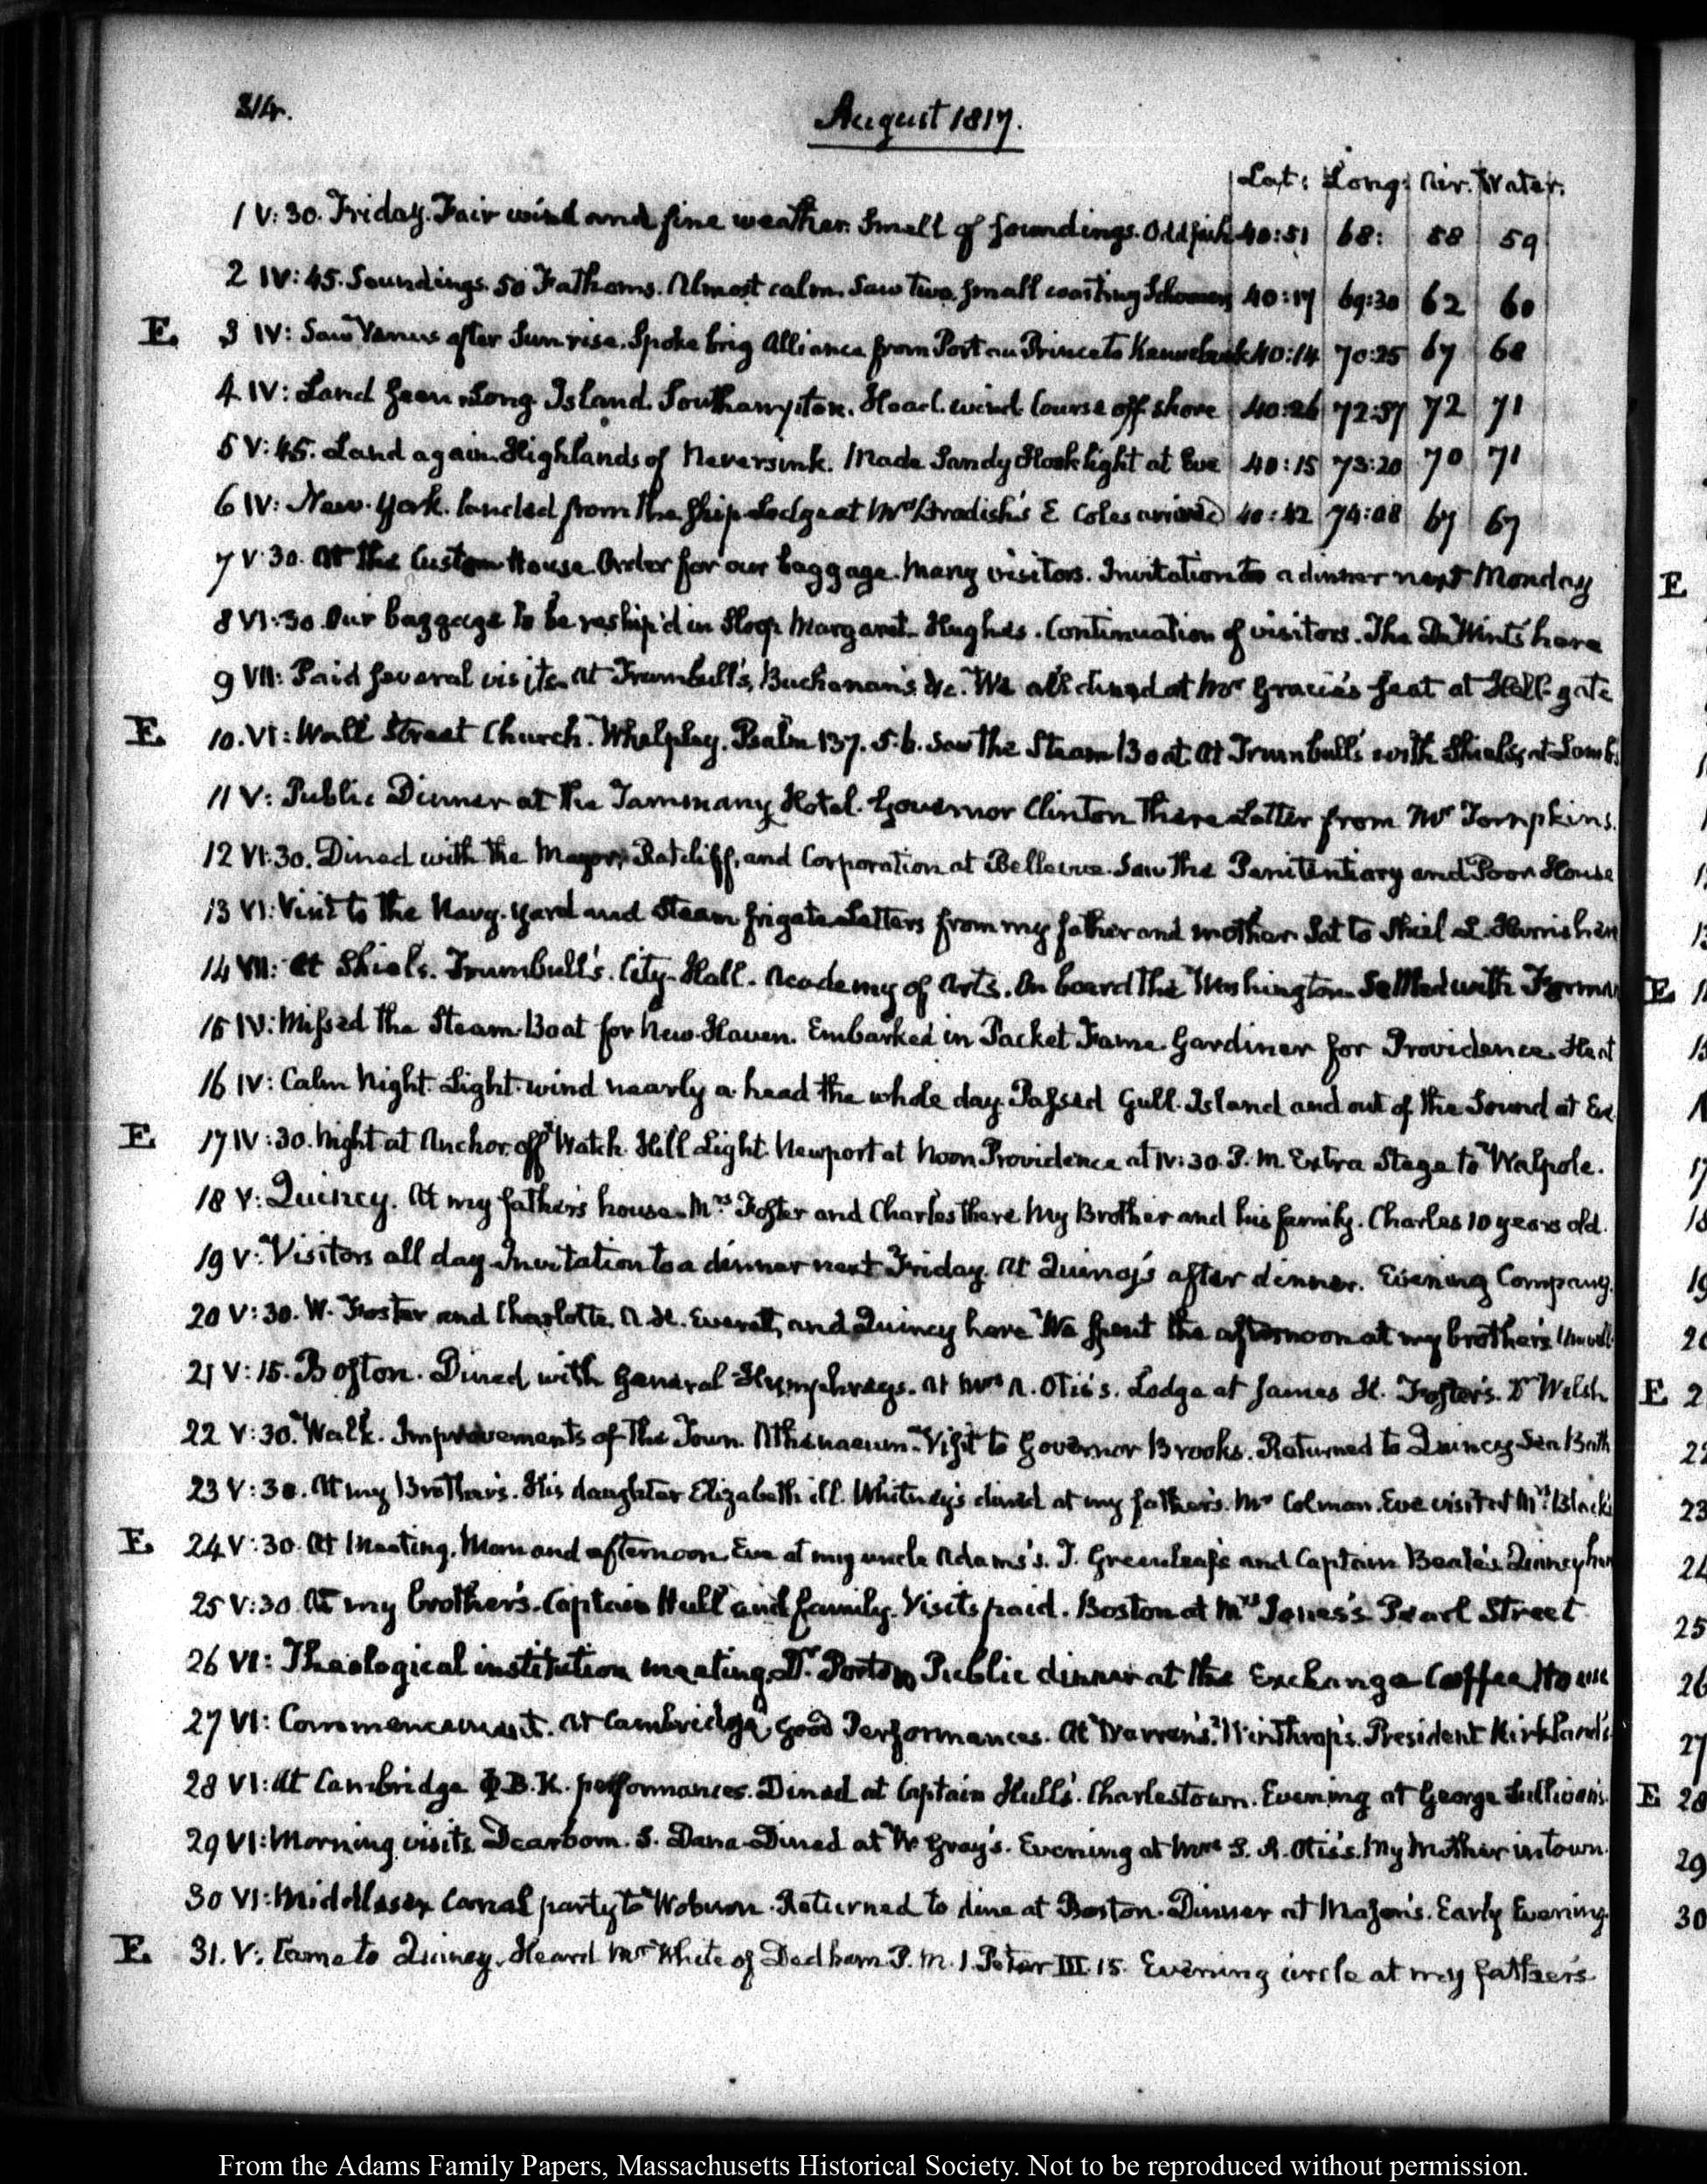 314.
August 1817.
Lat: Long: Air. Water.
1 V:30. Friday. Fair wind and fine weather. Smell of soundings. Odd fish 40:51 68: 58 59
2 IV:45. Soundings. 50 Fathoms. Almost calm. Saw two small coasting Schooners 40:17 69:30 62 60
E. 3 IV: Saw Venus after Sun rise. Spoke brig Alliance from Port au Prince to Kennebunk 40:14 70:25 67 68
4 IV: Land seen. Long Island. Southampton. Head wind. Course off shore 40:26 72:57 72 71
5 V:45. Land again. Highlands of Neversink. Made Sandy Hook light at Eve 40:15 73:20 70 71
6 IV: New-York. landed from the ship. Lodge at Mrs Bradish's E Coles arrived 40:42 74:08 67 67
7 V:30. At the Custom House. Order for our baggage. Many visitors. Invitation to a dinner next Monday
8 VI:30. Our baggage to be reship'd in Sloop Margaret. Hughes. Continuation of visitors. The De Wints here
9 VII: Paid several visits. At Trumbull's, Buchanan's &c. We all dined at Mr Gracie's seat at Hell-gate
E. 10. VI: Wall Street Church. Whelpley. Psalm 137. 5.6. Saw the Steam Boat. At Trumbull's with Shiels, at Lomb's
11 V: Public Dinner at the Tammany Hotel. Governor Clinton there. Letter from Mr Tompkins.
12 VI:30. Dined with the Mayor, Ratcliff, and Corporation at Bellevue. Saw the Penitentiary and Poor House
13 VI: Visit to the Navy-yard and Steam frigate. Letters from my father and mother. Sat to Shiel L. Harris here
14 VII: At Shiels. Trumbull's. City-Hall. Academy of Arts. On board the Washington. Settled with Forman
15 IV: Missed the Steam-Boat for New-Haven. Embarked in Packet Fame. Gardiner for Providence. Heat
16 IV: Calm Night. Light wind nearly a-head the whole day. Passed Gull-Island and out of the Sound at Eve
E. 17 IV:30. Night at Anchor off Watch Hill Light. Newport at Noon Providence at IV:30. P.M. Extra Stage to Walpole.
18 V: Quincy. At my father's house. Mrs Foster and Charles there My Brother and his family. Charles 10 years old.
19 V: Visitors all day. Invitation to a dinner next Friday. At Quincy's after dinner. Evening Company.
20 V:30. W. Foster and Charlotte. A. H. Everett, and Quincy here. We spent the afternoon at my brother's Unwell
21 V:15. Boston. Dined with General Humphreys. At Mrs A. Otis's. Lodge at James H. Foster's. Dr Welsh
22 V:30. Walk. Improvements of the Town. Athenaeum. Visit to Governor Brooks. Returned to Quincy Sea Bath
23 V:30. At my Brother's. His daughter Elizabeth ill. Whitney's dined at my father's. Mr Colman. Eve visited Mrs Black's
E. 24 V:30. At Meeting. Morn and afternoon. Eve at my uncle Adams's. J. Greenleaf's and Captain Beale's Quincy here
25 V:30 At my brother's. Captain Hull and family. Visits paid. Boston at Mrs Jones's Pearl Street
26 VI: Theological institution meeting. Dr Porter. Public dinner at the Exchange Coffee House
27 VI: Commencement. At Cambridge, good Performances. At Warren's. Winthrop's. President Kirkland's
28 VI: At Cambridge Φ.B.K. performances. Dined at Captain Hull's. Charlestown. Evening at George Sullivan's.
29 VI: Morning visits. Dearborn. S. Dana. Dined at W. Gray's. Evening at Mrs S. A. Otis's. My Mother in town.
30 VI: Middlesex Canal party to Woburn. Returned to dine at Boston. Dinner at Mason's. Early Evening.
E. 31. V: Came to Quincy. Heard Mr White of Dedham P.M. 1. Peter III. 15. Evening circle at my father's
From the Adams Family Papers, Massachusetts Historical Society. Not to be reproduced without permission.